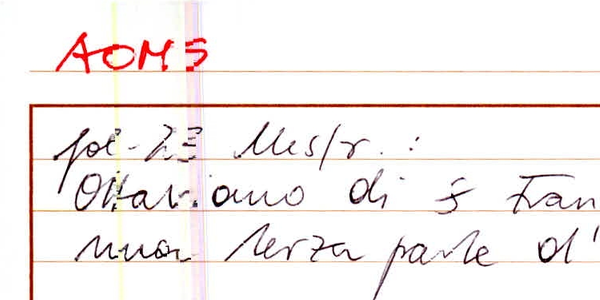 AOMS
fol. 23 Mss/r. :
Ottaviano di s Fran
una terza parte d'